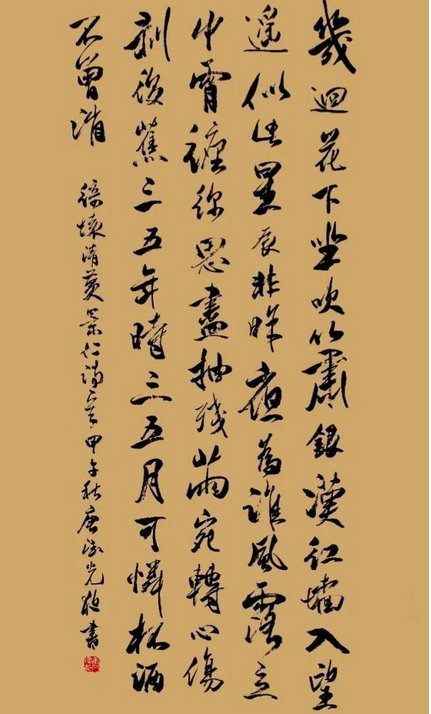 幾迴花下坐吹簫銀漢紅墻入望
遥似此星辰非昨夜為誰風露立
中霄纏綿思盡抽殘繭宛轉心傷
剝後蕉三五年時三五月可憐杯酒
不曾消
綺懷清黄景仁詩 甲午秋唐 光 書